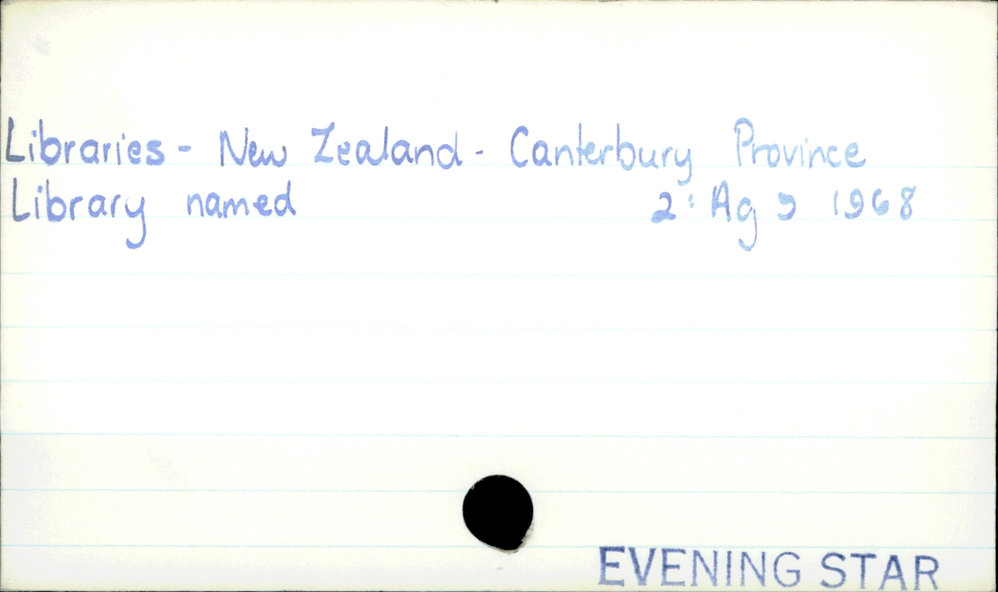 Libraries - New Zealand - Canterbury Province
Library named 2: Ag 9 1968
EVENING STAR